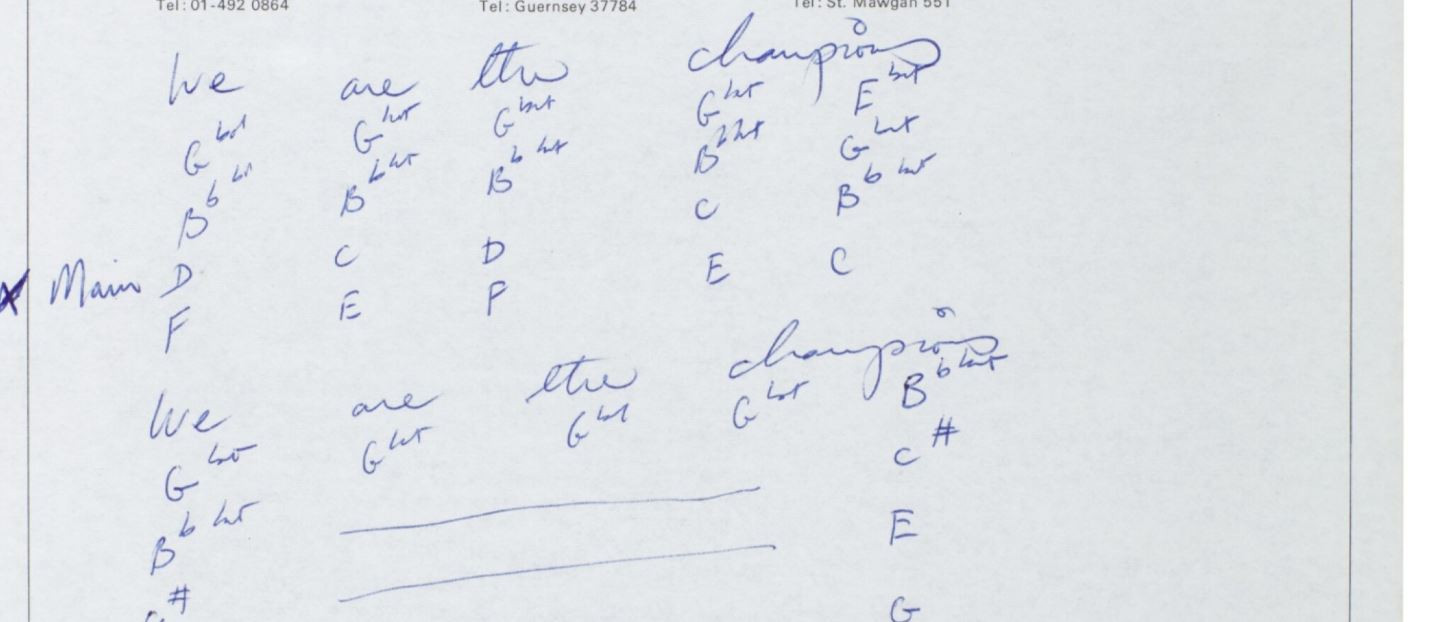 Tel: 01-492 0864 Tel: Guernsey 37784 Tel: St. Mawgan 551
We are the champions
G bot G bot G bot G bot E bot
B b bot B b bot B b bot B b bot G bot
D C D C B b bot
Main F E F E C
We are the champions
G bot G bot G bot G bot B b bot
B b bot C #
# E
G